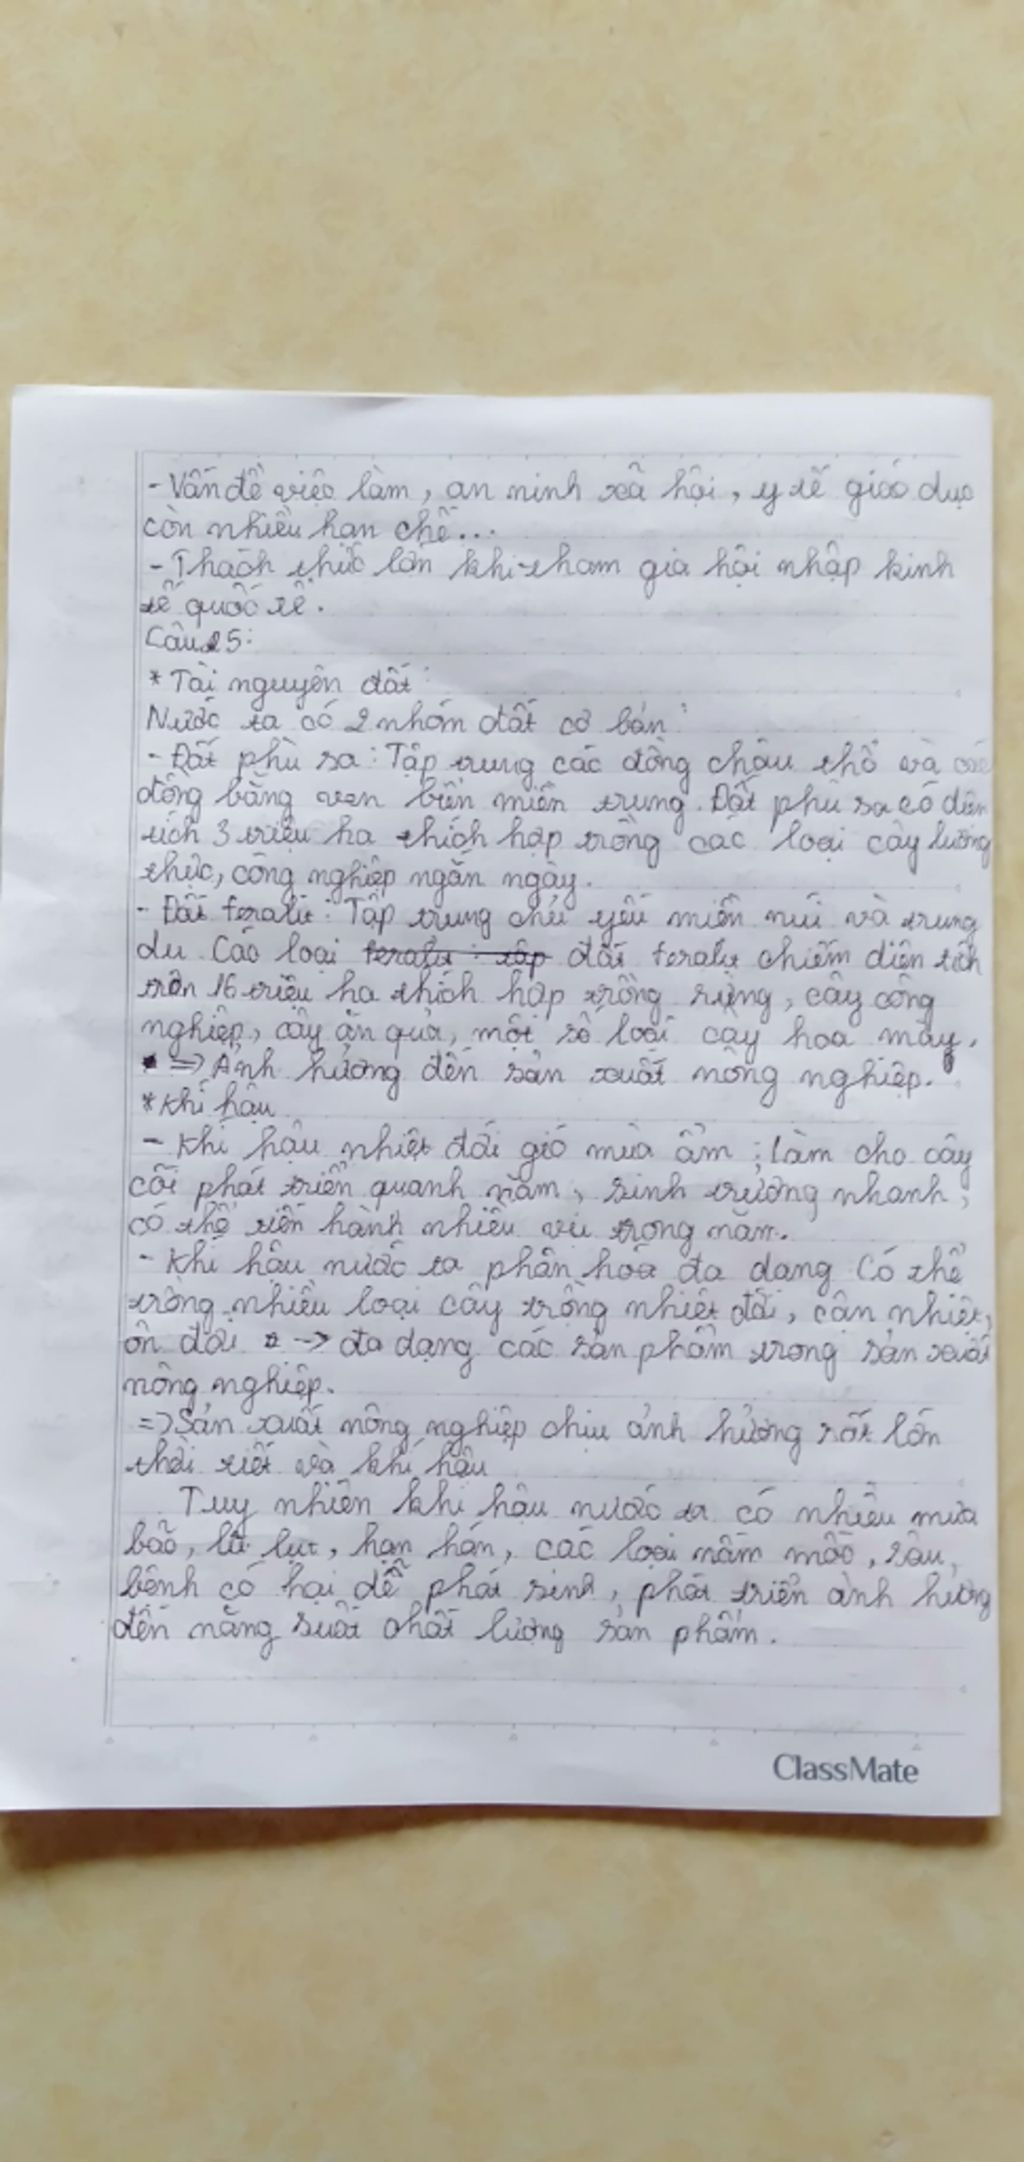 - Vấn đề việc làm, an ninh xã hội, y tế giáo dục
còn nhiều hạn chế...
- Thách thức lớn khi tham gia hội nhập kinh
tế quốc tế.
Câu 5:
* Tài nguyên đất:
Nước ta có 2 nhóm đất cơ bản:
- Đất phù sa: Tập trung các đồng châu thổ và các
đồng bằng ven biển miền trung. Đất phù sa có diện
tích 3 triệu ha thích hợp trồng các loại cây lương
thực, công nghiệp ngắn ngày.
- Đất feralit: Tập trung chủ yếu miền núi và trung
du. Các loại feralit tập đất feralit chiếm diện tích
trên 16 triệu ha thích hợp trồng rừng, cây công
nghiệp, cây ăn quả, một số loại cây hoa màu.
=> Ảnh hưởng đến sản xuất nông nghiệp.
* Khí hậu
- Khí hậu nhiệt đới gió mùa ẩm; làm cho cây
cối phát triển quanh năm, sinh trưởng nhanh,
có thể tiến hành nhiều vụ trong năm.
- Khí hậu nước ta phân hoá đa dạng Có thể
trồng nhiều loại cây trồng nhiệt đới, cận nhiệt,
ôn đới -> đa dạng các sản phẩm trong sản xuất
nông nghiệp.
=> Sản xuất nông nghiệp chịu ảnh hưởng rất lớn
thời tiết và khí hậu
Tuy nhiên khí hậu nước ta có nhiều mưa
bão, lũ lụt, hạn hán, các loại nấm mốc, sâu,
bệnh có hại dễ phát sinh, phát triển ảnh hưởng
đến năng suất chất lượng sản phẩm.
ClassMate